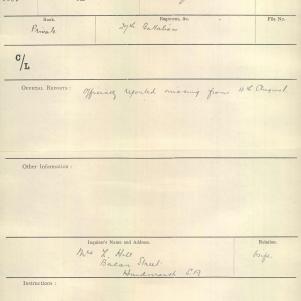 Rank. Regiment, &c. File No.
Private 27th Battalion
C/L
OFFICIAL REPORTS: Officially reported missing from 4th August
Other Information:
Inquirer's Name and Address. Relation.
Mrs L. Hill wife.
Bacon Street
Hindmarsh S.A
Instructions: